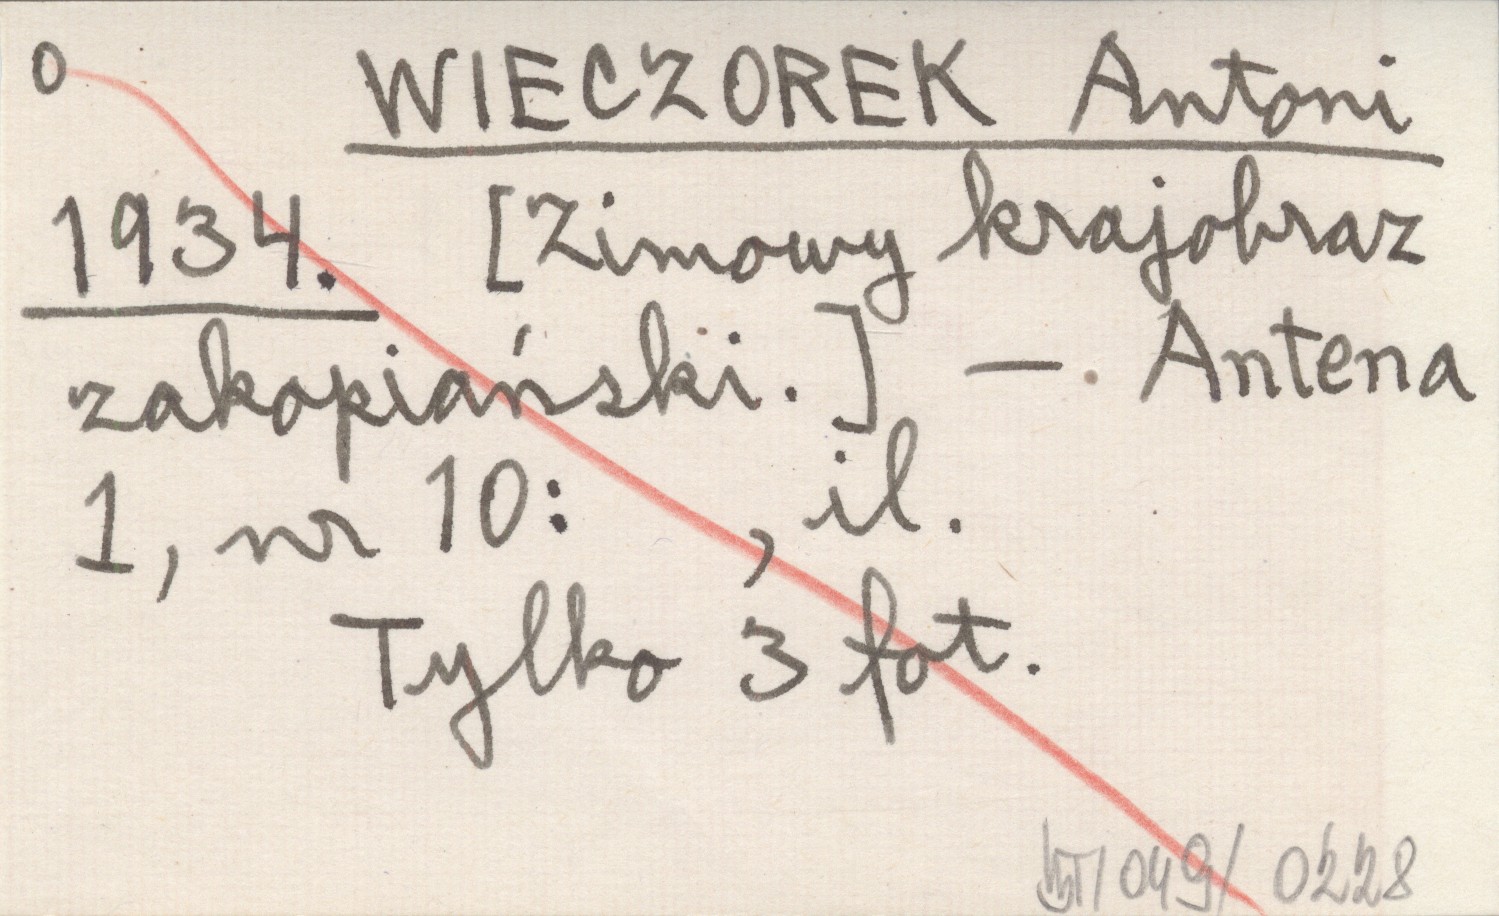 0 WIECZOREK Antoni
1934. [Zimowy krajobraz
zakopiański.] — Antena
1, nr 10: , il.
Tylko 3 fot.
049/0228